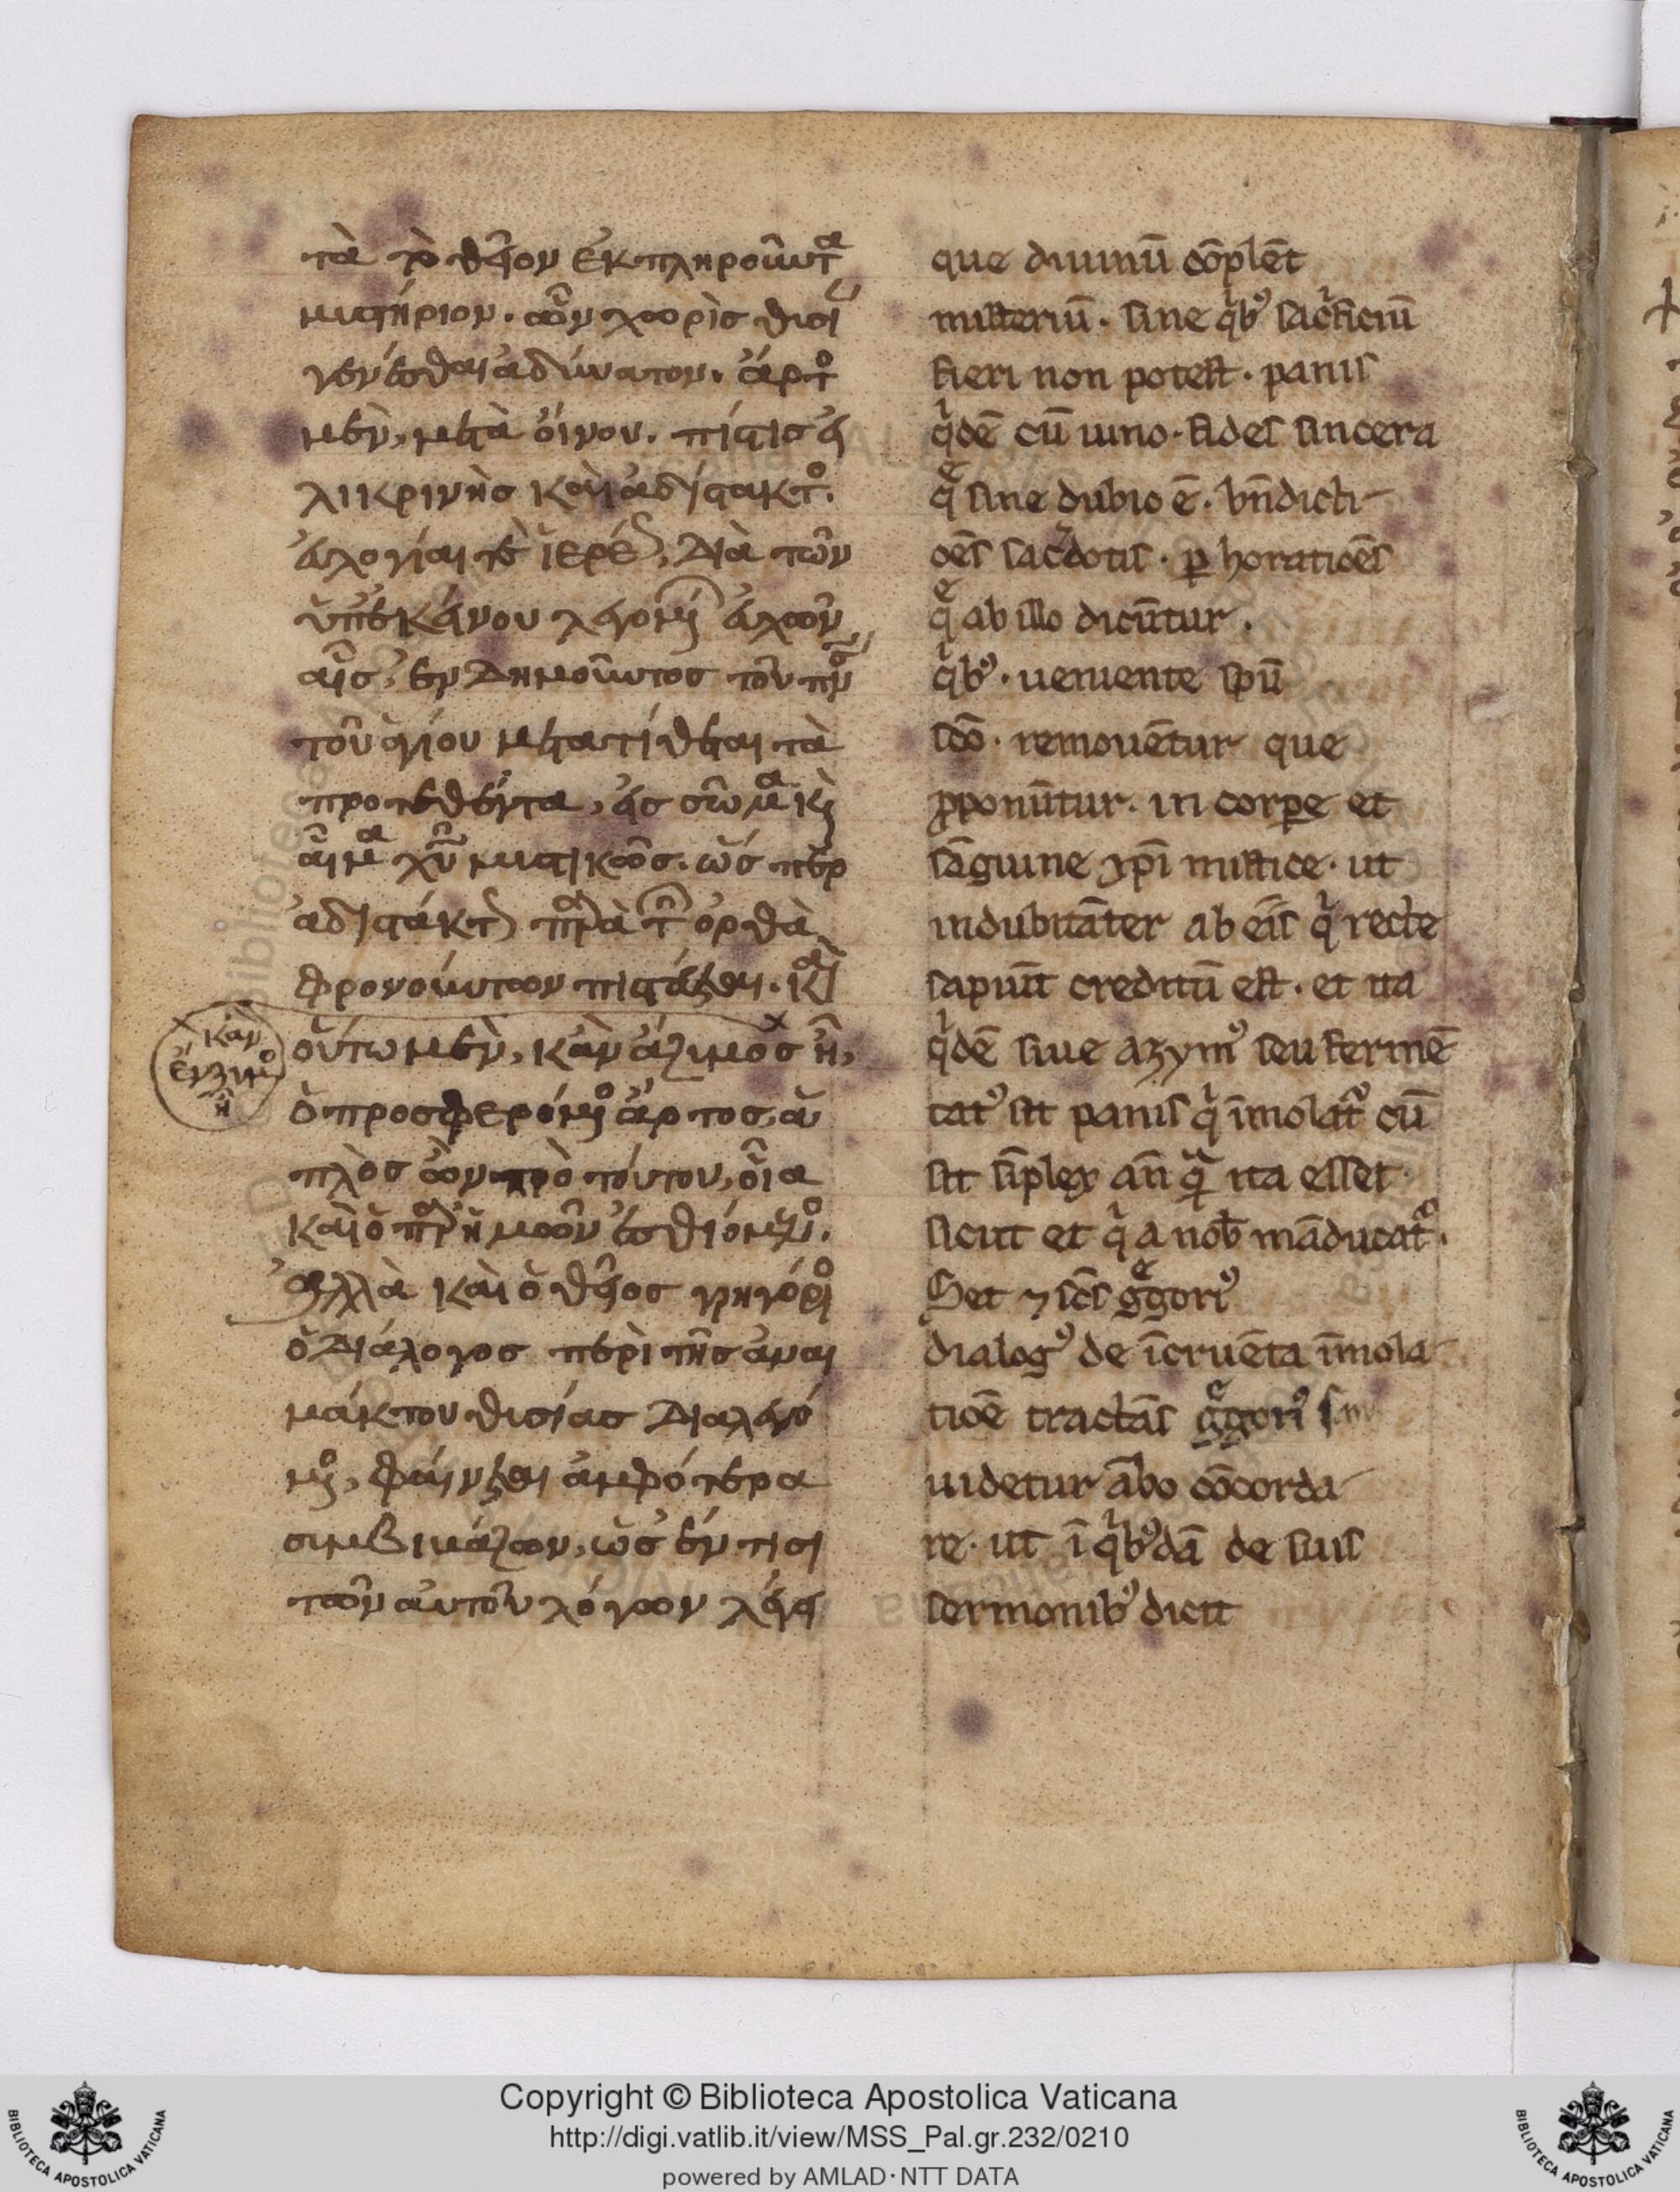 τὰ τὸ θεῖον ἐκπληροῦντα
μιστήριον. ὧν χωρὶς θισι
γενέσθαι αδύνατον. άρτο
μὲν, μετὰ οίνου. πίστισ εἰ
λικρινὴσ καὶ αδίστακτο.
ευλογίαι τοῦ ἱερέ, διὰ τῶν
ὑπ' εκείνου λεγομ ευχῶν
αἷς, ενδημοῦντος τοῦ πν
τοῦ αγίου μετατίθεται τὰ
προτεθέντα, εις σῶμα κὶ
αἷμα χυ μιστικῶς. ὥς περ
αδιστάκτ παρὰ τ ορθὰ
φρονούντων πιστεύεται. καὶ
οὕτω μὲν, κὰν άζιμος ῆ,
κὰν
ένζιμο
ῆ
ὁ προσφερόμ άρτος, ἁ
πλὸς ὢν πρὸ τούτου, οἷα
καὶ ὁ παρ' ἡμῶν εσθιόμεν.
αλλὰ καὶ ὁ θεῖος γρηγόρι
ὁ διάλογος περὶ τῆς αναι
μάκτου θισίας διαλεγό
μ, φαίνεται αμφότερα
σιμβιβάζων, ὡς έν τισι
τῶν αυτοῦ λόγων λέγει
que diuinū cōplēt
misteriū. sine qbꝰ sacficiū
fieri non potest. panis
qdē cū uino. fides sincera
q sine dubio ē. bn̄dicti
oēs sacdotis. ꝑ horatiōes
q ab illo dicūtur.
qbꝰ. ueniente spū
scō. remouētur que
ꝓponūtur. in corꝑe et
sāguine xpī mistice. ut
indubitāter ab eis q recte
sapiūt creditū est. et ita
qdē siue azymꝰ seu fermē
tatꝰ sit panis q īmolatꝰ cū
sit sīplex an̄ q ita esset
sicut et q a nob māducatꝰ.
Set ⁊ scs ggoriꝰ
dialogꝰ de īcruēta īmola
tiōe tractās ggoriꝰ
uidetur ābo cōcorda
re. ut ī qbꝰdā de suis
sermonibꝰ dicit
Copyright © Biblioteca Apostolica Vaticana
http://digi.vatlib.it/view/MSS_Pal.gr.232/0210
powered by AMLAD·NTT DATA
BIBLIOTECA APOSTOLICA VATICANA
BIBLIOTECA APOSTOLICA VATICANA